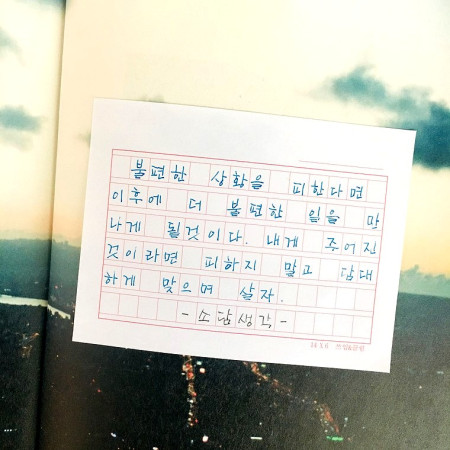 불편한 상황을 피한다면
이후에 더 불편한 일을 만
나게 될것이다. 내게 주어진
것이라면 피하지 말고 담대
하게 맞으며 살자.
- 소담생각 -